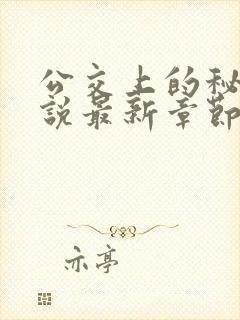 公交上的秘
説最新章節
亦亭